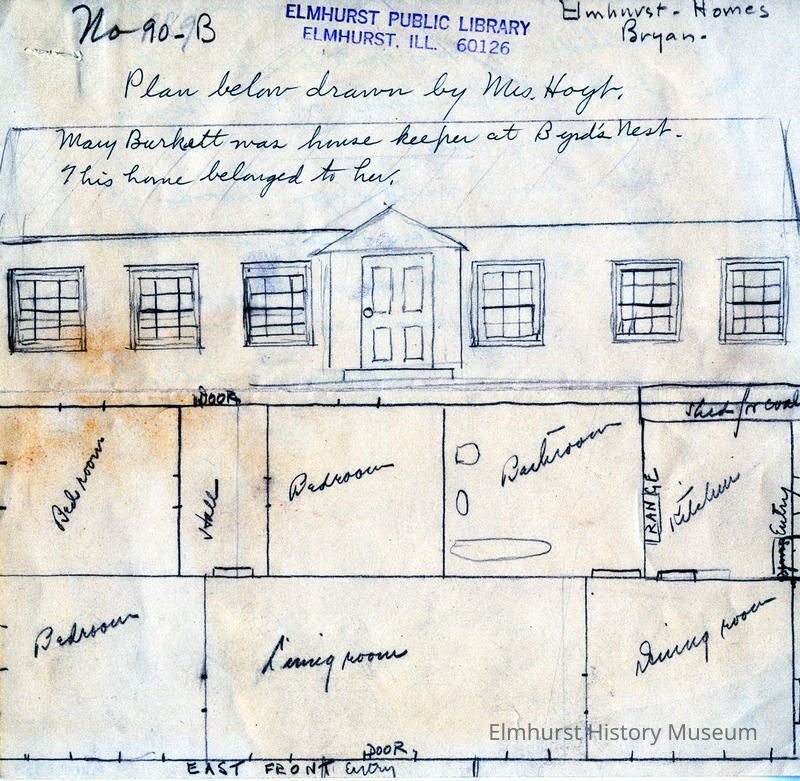 No-90-B
ELMHURST PUBLIC LIBRARY
ELMHURST, ILL. 60126
Elmhurst - Homes
Bryan.
Plan below drawn by Mrs. Hoyt.
Mary Burkett was house keeper at Byrd's Nest.
This home belonged to her.
DOOR
Shed for coal
Bedroom
Hall
Bedroom
Bathroom
RANGE
Kitchen
Entry
Bedroom
Living room
Dining room
DOOR
EAST FRONT Entry
Elmhurst History Museum